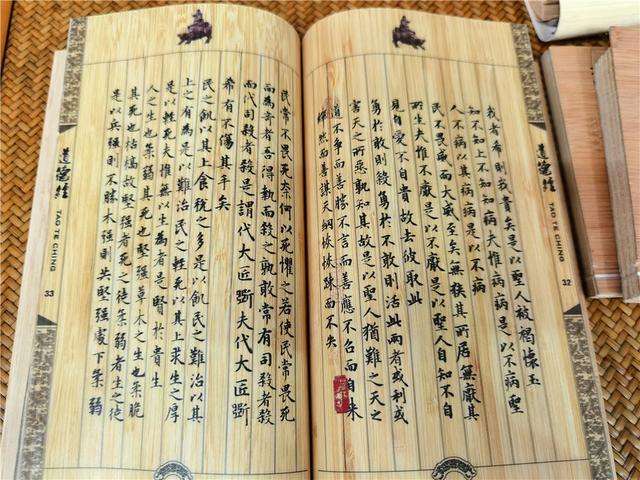 道德經
TAO TE CHING
32
我者希則我貴矣是以聖人被褐懷玉
知不知上不知知病夫惟病病是以不病聖
人不病以其病病是以不病
民不畏威而大威至矣無狹其所居無厭其
所生夫惟不厭是以不厭是以聖人自知不自
見自愛不自貴故去彼取此
勇於敢則殺勇於不敢則活此兩者或利或
害天之所惡孰知其故是以聖人猶難之天之
道不爭而善勝不言而善應不召而自來
然而善謀天網恢恢踈而不失
民常不畏死奈何以死懼之若使民常畏死
而為奇者吾得執而殺之孰敢常有司殺者殺
而代司殺者殺是謂代大匠斲夫代大匠斲
希有不傷其手矣
民之飢以其上食稅之多是以飢民之難治以其
上之有為是以難治民之輕死以其上求生之厚
是以輕死夫惟無以生為者是賢於貴生
人之生也柔弱其死也堅強草木之生也柔脆
其死也枯槁故堅強者死之徒柔弱者生之徒
是以兵強則不勝木強則共堅強處下柔弱
道德經
TAO TE CHING
33